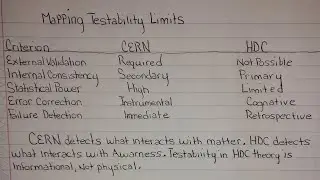 Mapping Testability Limits
Criterion CERN HDC
External Validation Required Not Possible
Internal Consistency Secondary Primary
Statistical Power High Limited
Error Correction Instrumental Cognitive
Failure Detection Immediate Retrospective
CERN detects what interacts with matter. HDC detects
what interacts with Awarness. Testability in HDC theory is
Informational, Not physical.